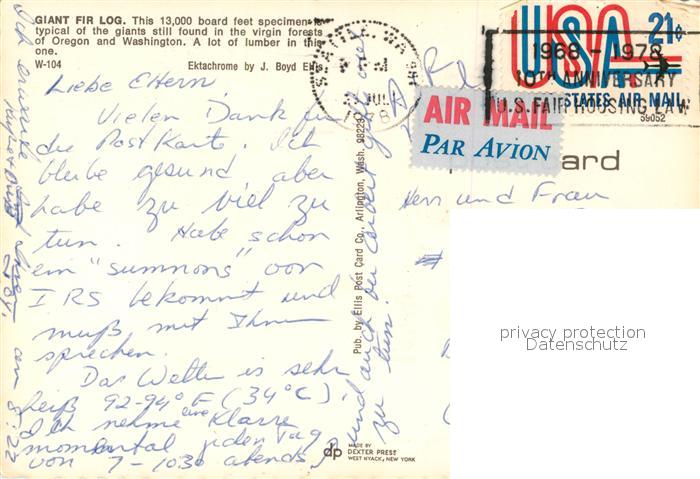 GIANT FIR LOG. This 13,000 board feet specimen is
typical of the giants still found in the virgin forests
of Oregon and Washington. A lot of lumber in this
one.
W-104 Ektachrome by J. Boyd Ellis
Liebe Eltern,
Vielen Dank für
die Postkarte. Ich
bleibe gesund aber
habe zu viel zu
tun. Habe schon
ein "summons" von
IRS bekommt und
muß mit Ihm
sprechen.
Das Wetter is sehr
heiß 92-94° F (34°C).
Ich nehme eine Klasse
momental jeden Tag
von 7-1030 abends
und auch der Arbeit
zu tun.
am 8.22
Pub. by Ellis Post Card Co., Arlington, Wash. 98223
dp MADE BY
DEXTER PRESS
WEST NYACK, NEW YORK
SEATTLE, WA
PM
JUL
USA 21¢
1968 - 1978
10TH ANNIVERSARY
U.S. FAIR HOUSING LAW
STATES AIR MAIL
59052
AIR MAIL
PAR AVION
card
Herr und Frau
privacy protection
Datenschutz